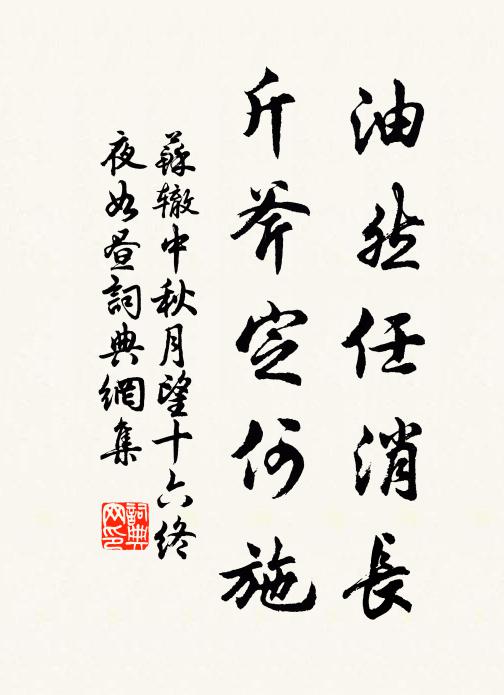 油然任消長
斤斧定何施
蘇辙中秋月望十六終
夜如晝詞典網集
詞典
网印